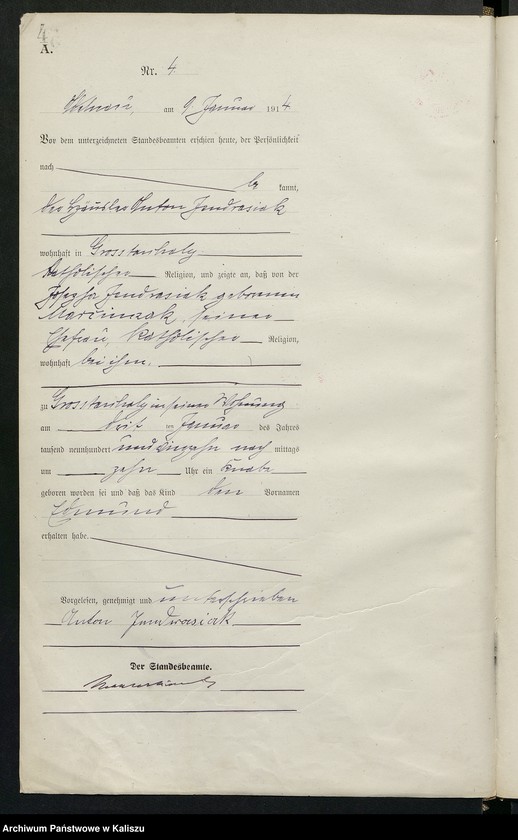 4
A.
Nr. 4
am 9. Januar 1914
Vor dem unterzeichneten Standesbeamten erschien heute, der Persönlichkeit
nach be kannt,
der Häusler Anton Jendrasiak
wohnhaft in
katholischer Religion, und zeigte an, daß von der
Josepha Jendrasiak geborenen
Marciniak, seiner
Ehefrau, katholischer Religion,
wohnhaft bei ihm,
zu in seiner Wohnung
am ten Januar des Jahres
tausend neunhundert und vierzehn nach mittags
um zehn Uhr ein Knabe
geboren worden sei und daß das Kind den Vornamen
Edmund
erhalten habe.
Vorgelesen, genehmigt und unterschrieben
Anton Jendrasiak
Der Standesbeamte.
Archiwum Państwowe w Kaliszu